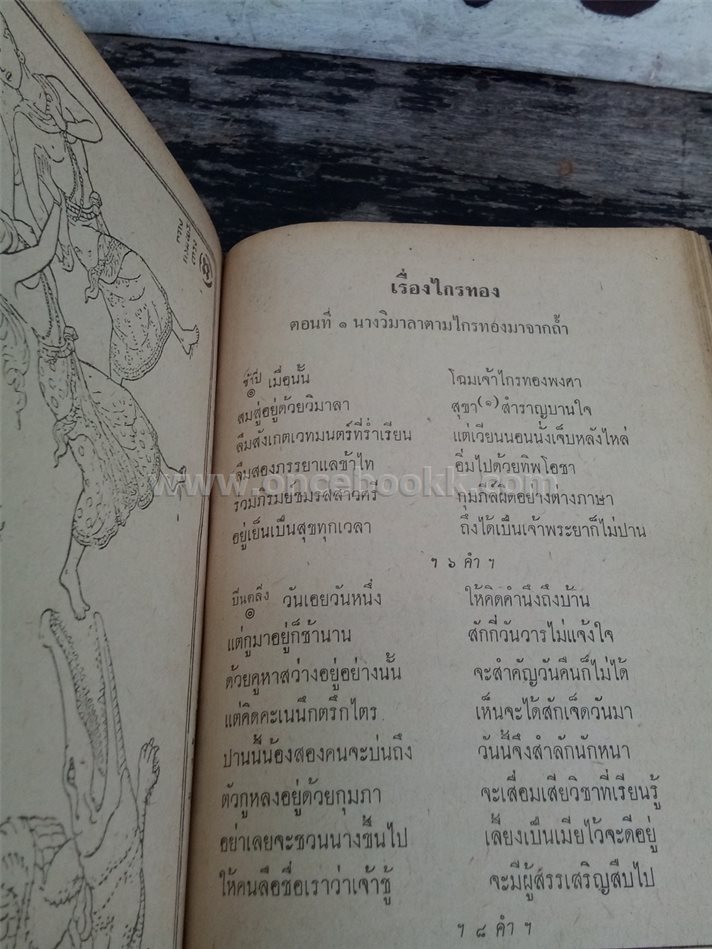 เรื่องไกรทอง
ตอนที่ ๑ นางวิมาลาตามไกรทองมาจากถ้ำ
ช้าปี่ เมื่อนั้น โฉมเจ้าไกรทองพงศา
๏
สมสู่อยู่ด้วยวิมาลา สุขา(๑)สำราญบานใจ
ลืมสังเกตเวทมนตร์ที่ร่ำเรียน แต่เวียนนอนนั่งเจ็บหลังไหล่
ลืมสองภรรยาแลข้าไท อิ่มไปด้วยทิพโอชา
ร่วมภิรมย์ชมรสสาวศรี กุมภีล์ผิดอย่างต่างภาษา
อยู่เย็นเป็นสุขทุกเวลา ถึงได้เป็นเจ้าพระยาก็ไม่ปาน
ฯ ๖ คำ ฯ
ปีนตลิ่ง วันเอยวันหนึ่ง ให้คิดคำนึงถึงบ้าน
๏
แต่กูมาอยู่ก็ช้านาน สักกี่วันวารไม่แจ้งใจ
ด้วยคูหาสว่างอยู่อย่างนั้น จะสำคัญวันคืนก็ไม่ได้
แต่คิดคะเนนึกตรึกไตร เห็นจะได้สักเจ็ดวันมา
ปานนี้น้องสองคนจะบ่นถึง วันนี้จึงสำลักนักหนา
ตัวกูหลงอยู่ด้วยกุมภา จะเสื่อมเสียวิชาที่เรียนรู้
อย่าเลยจะชวนนางขึ้นไป เลี้ยงเป็นเมียไว้จะดีอยู่
ให้คนลือชื่อเราว่าเจ้าชู้ จะมีผู้สรรเสริญสืบไป
ฯ ๘ คำ ฯ
www.oncebookk.com